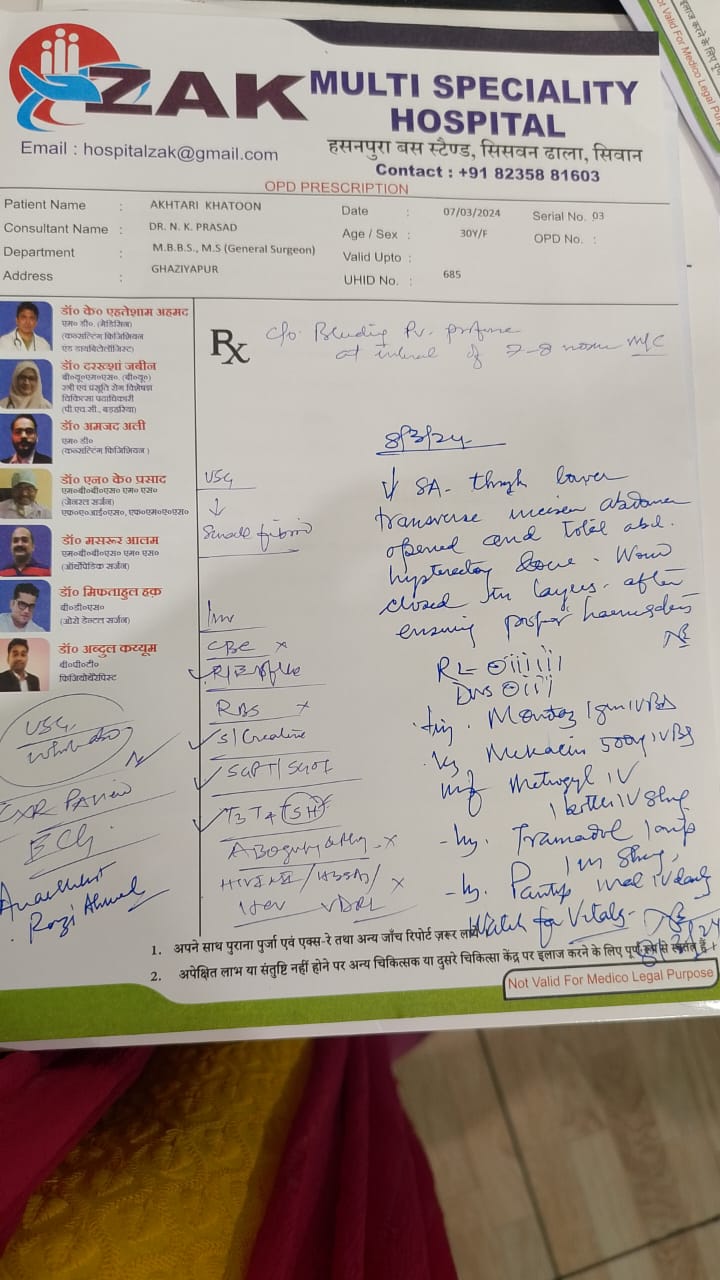 ZAK MULTI SPECIALITY
HOSPITAL
हसनपुरा बस स्टैण्ड, सिसवन ढाला, सिवान
Email : hospitalzak@gmail.com
Contact : +91 82358 81603
OPD PRESCRIPTION
Patient Name : AKHTARI KHATOON Date : 07/03/2024 Serial No. 03
Consultant Name : DR. N. K. PRASAD Age / Sex : 30Y/F OPD No. :
Department : M.B.B.S., M.S (General Surgeon) Valid Upto :
Address : GHAZIYAPUR UHID No. : 685
डॉ० के० एहतेशाम अहमद
एम० डी०. (मेडिसिन)
(कन्सल्टिंग फिजिशियन
एंड डायबिटोलॉजिस्ट)
डॉ० दरख्शां जबीन
बी०यू०एम०एस०. (बी०यू०)
स्त्री एवं प्रसूति रोग विशेषज्ञ
चिकित्सा पदाधिकारी
(पी.एच.सी., बड़हरिया)
डॉ० अमजद अली
एम० डी०
(कन्सल्टिंग फिजिशियन )
डॉ० एन० के० प्रसाद
एम०बी०बी०एस० एम० एस०
(जेनरल सर्जन)
एफ०ए०आई०एस०, एफ०एम०ए०एस०
डॉ० मसरूर आलम
एम०बी०बी०एस० एम० एस०
(ऑर्थोपेडिक सर्जन)
डॉ० मिफताहुल हक़
बी०डी०एस०
(ओरो डेन्टल सर्जन)
डॉ० अब्दुल कय्यूम
बी०पी०टी०
फिजियोथेरेपिस्ट
USG
ECG
Rx
c/o Bleeding Pv. profuse
at interval of M/C
USG
↓
Small
Inv
CBC ×
RBS ×
S/Creatine
SGPT/SGOT
T3 T4 TSH
×
HIV / HBSAg / ×
HCV VDRL
8/3/24
↓ SA. through lower
transverse incision abdomen
opened and total abd.
hysterectomy done. Wound
closed in layers. after
ensuring proper haemostasis
RL
DNS
Inj. 1gm IV BD
Inj. 500mg IV BD
Inj Metrogyl IV
1 bottle IV 8hrly
- Inj. Tramadol 1 amp
IM 8hrly
- Inj. IV daily
Watch for Vitals-
1. अपने साथ पुराना पुर्जा एवं एक्स-रे तथा अन्य जाँच रिपोर्ट ज़रूर
2. अपेक्षित लाभ या संतुष्टि नहीं होने पर अन्य चिकित्सक या दुसरे चिकित्सा केंद्र पर इलाज करने के लिए पूर्ण रूप से स्वतंत्र हैं ।
Not Valid For Medico Legal Purpose